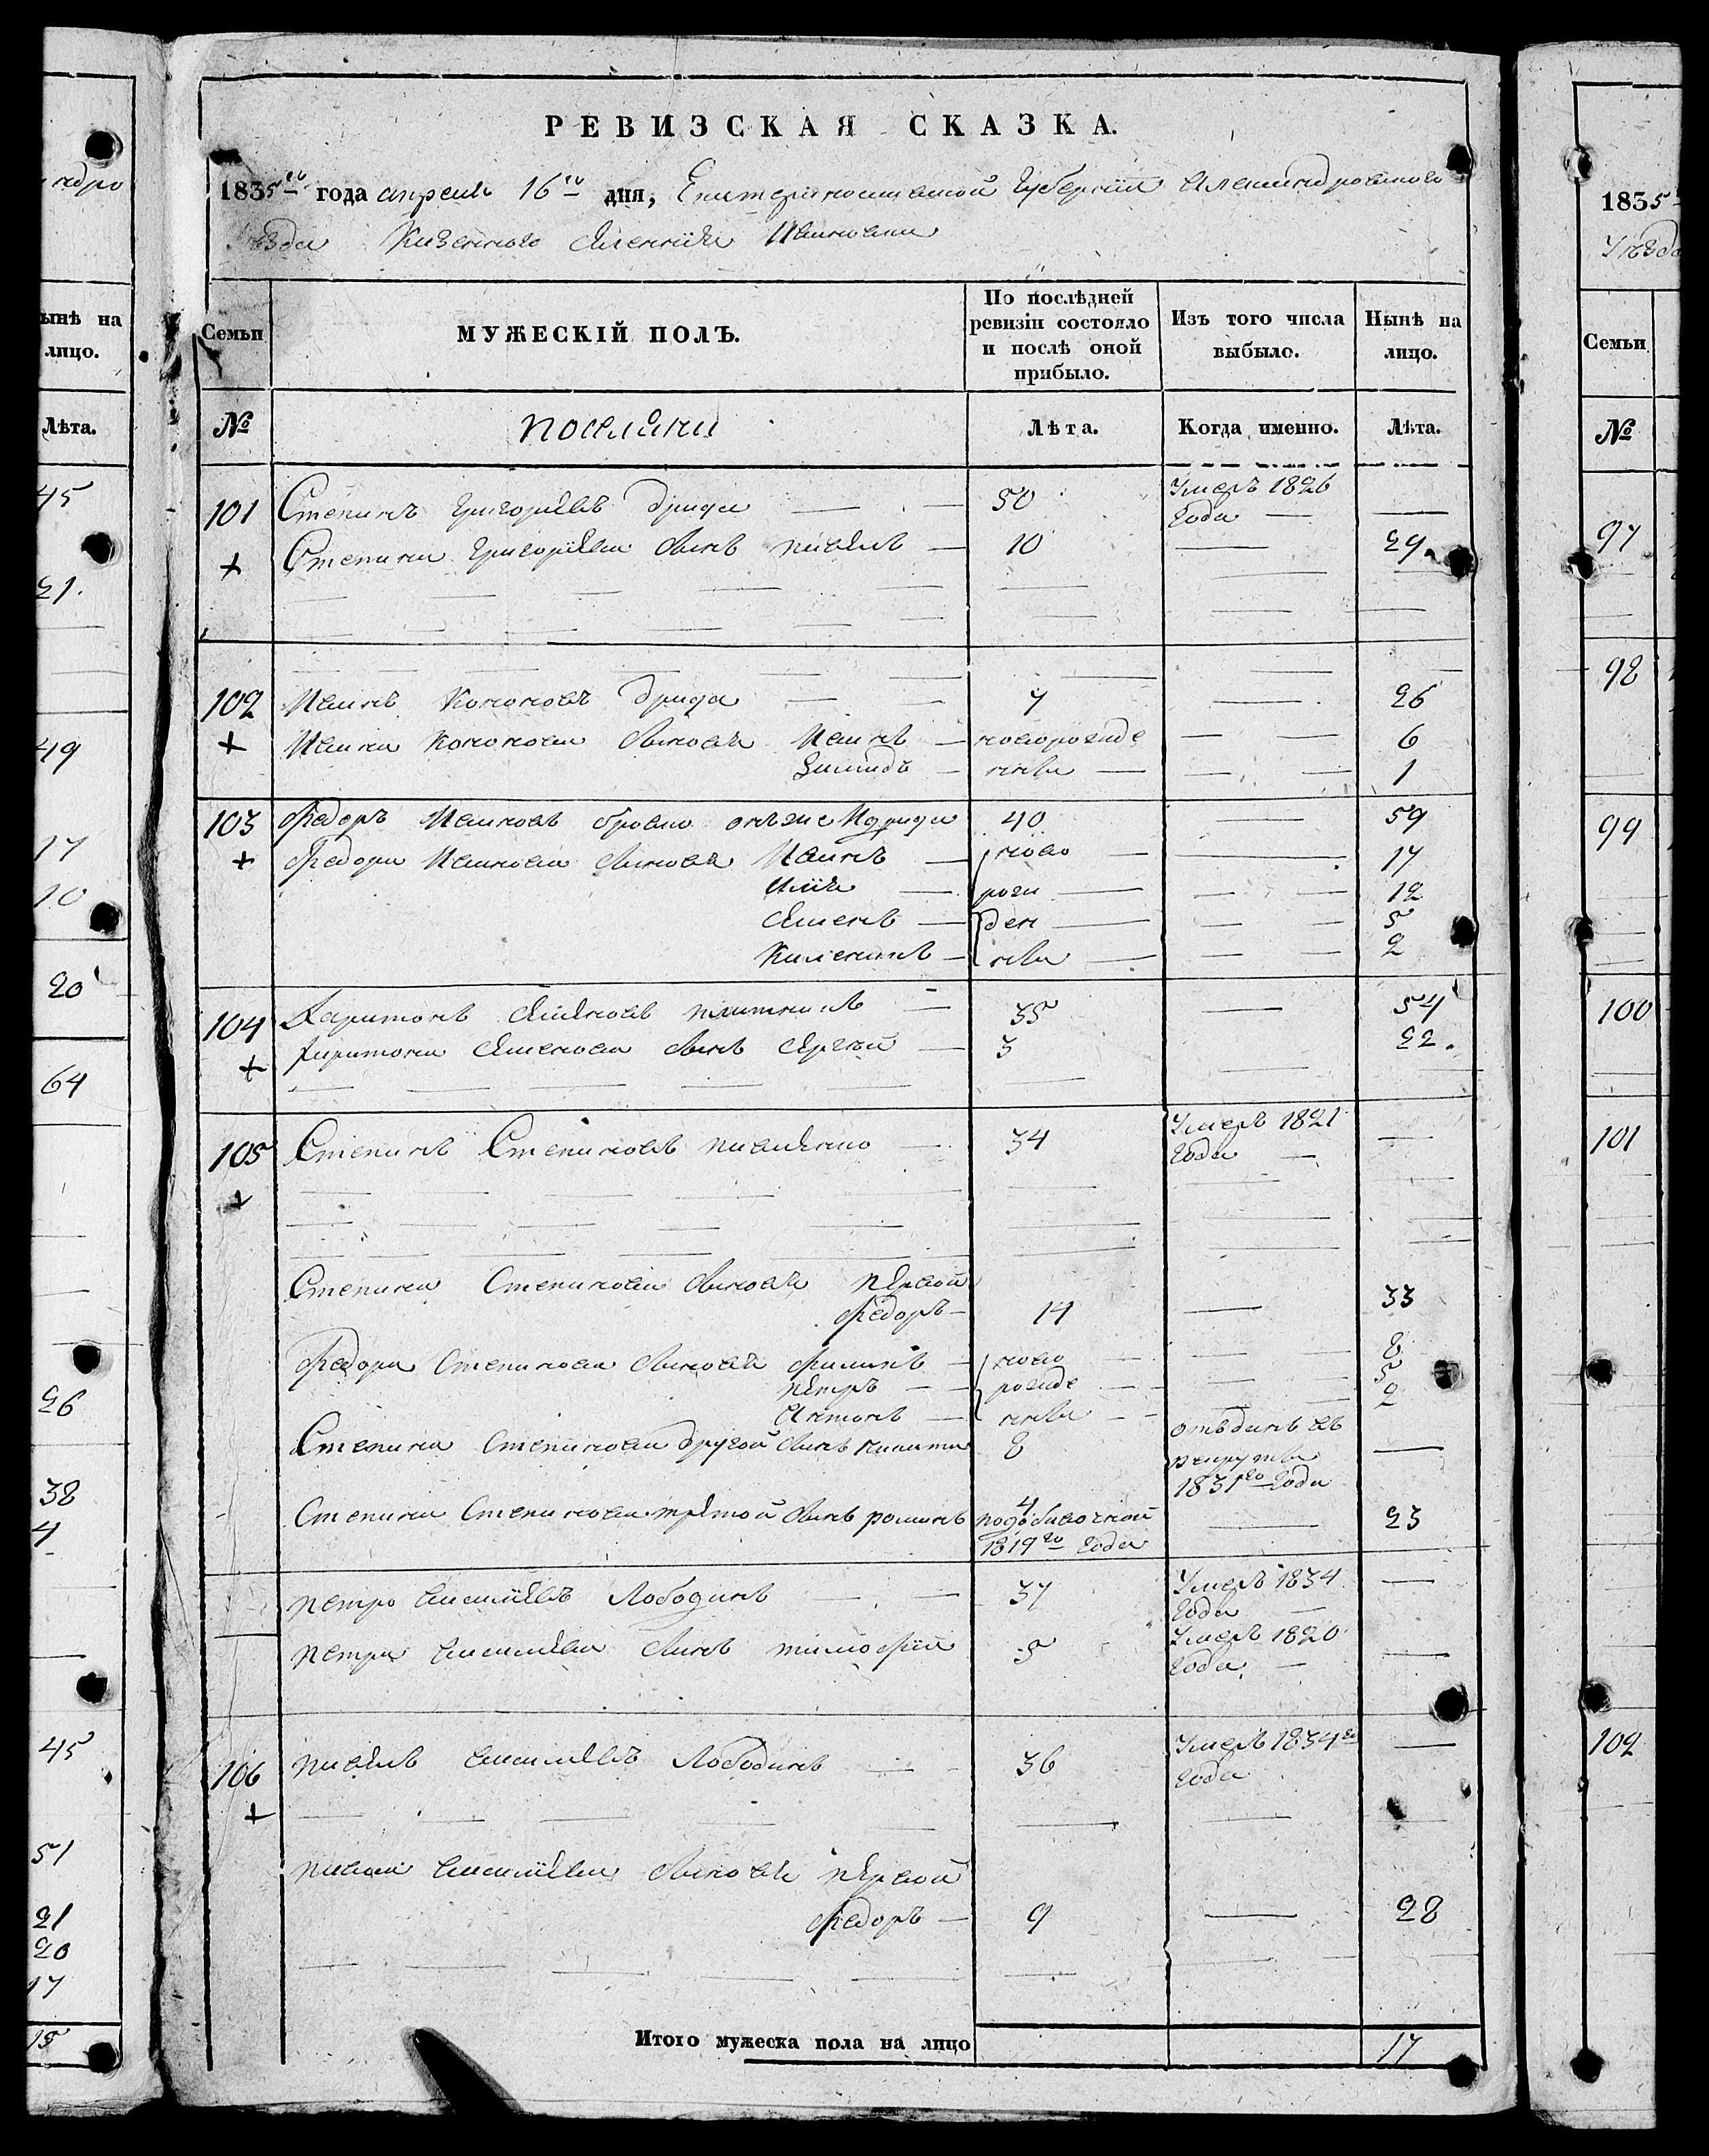 РЕВИЗСКАЯ СКАЗКА.
1835го года апреля 16го дня, Екатеринославской Губернии Александровского
Уѣзда Казенного селения
Семьи
МУЖЕСКІЙ ПОЛЪ.
По послѣдней ревизіи состояло и послѣ оной прибыло.
Изъ того числа выбыло.
Нынѣ на лицо.
№
поселяни
Лѣта.
Когда именно.
Лѣта.
101 Степанъ Григорьевъ Дрига — 50 Умеръ 1826 —
года —
+ Степана Григорьева сынъ павелъ — 10 — 29
102 Иванъ Кононовъ Дрига — 7 — 26
+ Ивана Кононова сыновья Иванъ — новорожде — 6
— нные — 1
103 Федоръ Ивановъ онъже Идрига 40 — 59
+ Федора Ивановa сыновья Иванъ — ново — 17
Илья — рож — 12
Семенъ — ден — 5
— ные — 2
104 Харитонъ Семеновъ — 35 — 54
+ Харитона Семенова сынъ Сергѣй — 3 — 22
105 Степанъ Степановъ — 34 Умеръ 1821 —
года —
+
Степана Степанова сыновья первой
Федоръ — 14 — 33
Федора Степанова сыновья Филипъ — ново — 8
петръ — рожде — 5
Антонъ — нные — 2
Степана Степанова другой сынъ никита 8 отъданъ въ —
рекруты
1831го года
Степана Степанова третой сынъ романъ 4 — 23
1819го года
петро васильевъ Лободинъ — 37 Умеръ 1834 —
года —
петра васильева сынъ тимофей 5 Умеръ 1820 —
года —
106 павелъ васильевъ Лободинъ — 36 Умеръ 1834го —
года
+
павла васильева сыновья первой
Федоръ — 9 — 28
Итого мужеска пола на лицо 17
ндро
ынѣ на
лицо.
Лѣта.
45
21.
49
17
10
20
64
26
38
4
45
51
21
20
17
15
1835
Уѣзда
Семьи
№
97
98
99
100
101
102